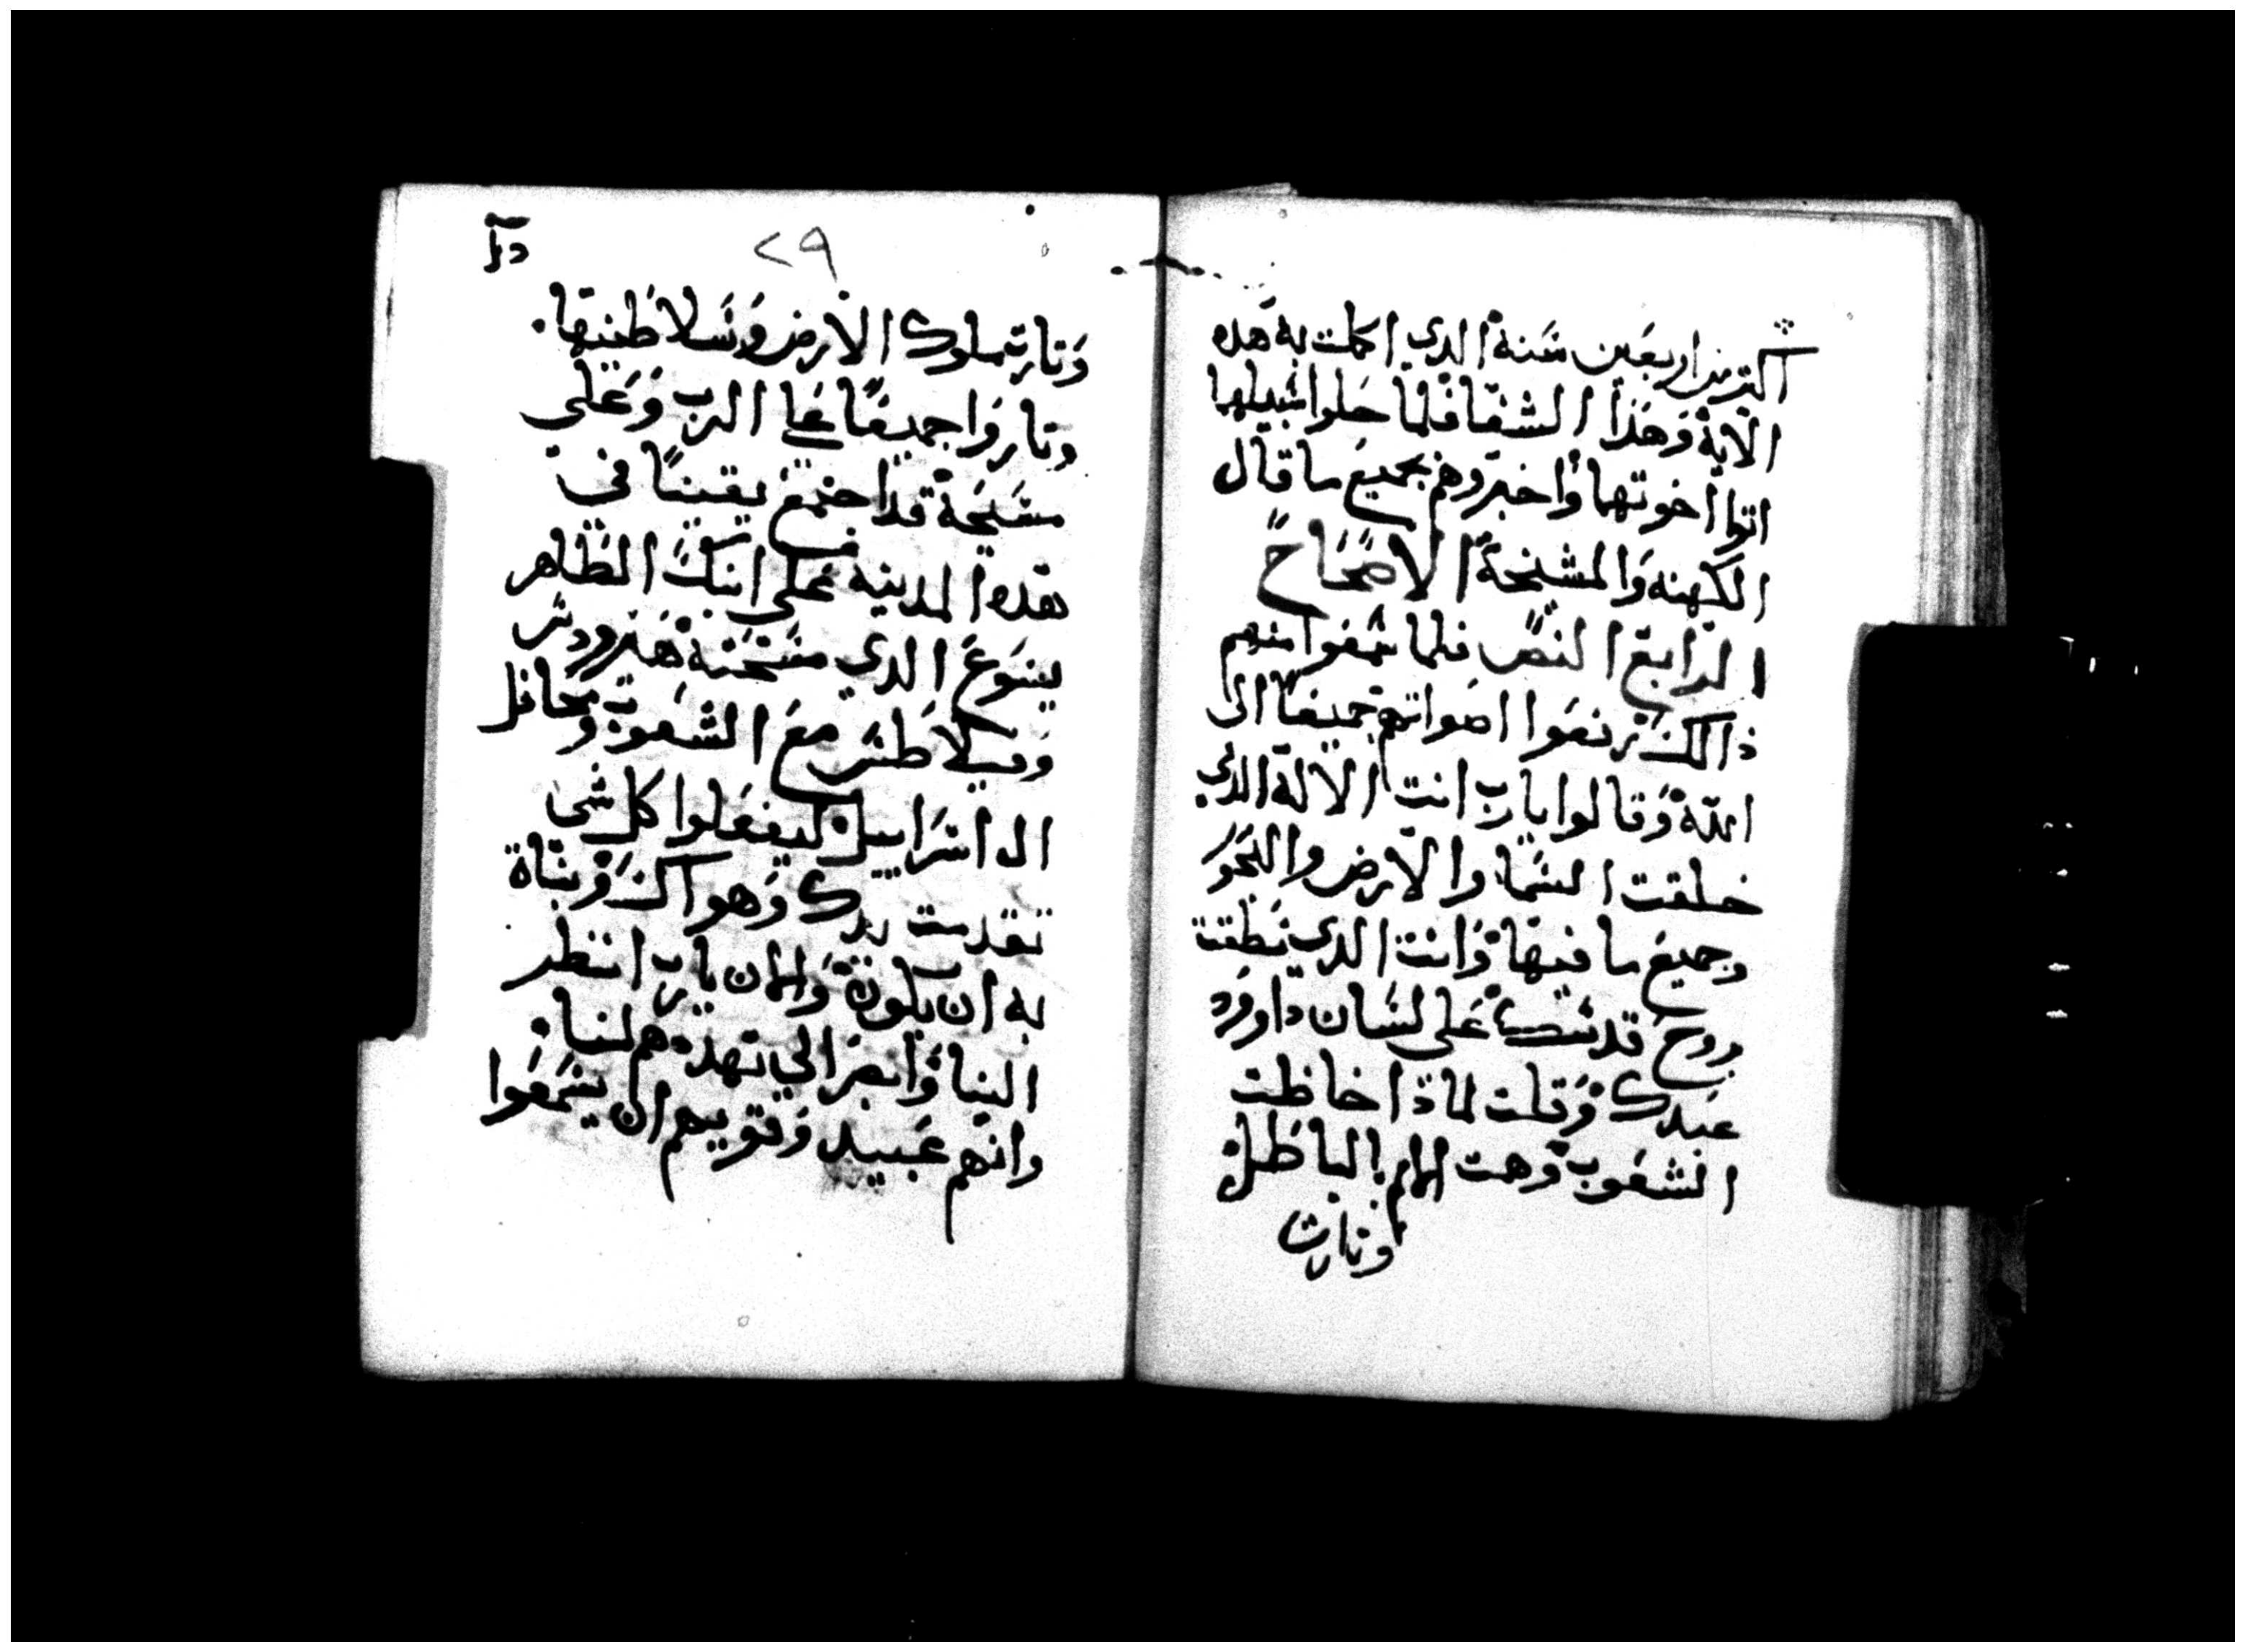 اكتر من اربعين سنة الدي اكملت به هده
الاية وهذا الشفا فلما حلوا سبيلهما
اتوا اخوتهما واخبروهم بجميع ما قال
الكهنه والمشيخة الاصحاح
الرابع النص فلما سمعوا منهم
ذالك رفعوا اصواتهم جميعا الى
الله وقالوا يارب انت الاله الدي
خلقت السما والارض والبحور
وجميع ما فيها وانت الدي نطقت
بروح قدسك على لسان داوود
عبدك وقلت لماذا خاظت
الشعوب وهت الامم بالباطل
وتارت
٢٩
وتارة ملوك الارض وسلاطينها.
وتاروا جميعا على الرب وعلى
مسيحة قد اجتمع يقينا في
هده المدينه على ابنك الطاهر
يسوع الدي مسحته هيرودس
وبيلاطس مع الشعوب ومحافل
ال اسراييل ليفعلوا كل شي
تقدمت يدك وهواك ونباة
به ان يكون والان يارب انظر
الينا وابصر الي تهددهم لنا
وانهم عبيد وقويهم ان يسمعوا